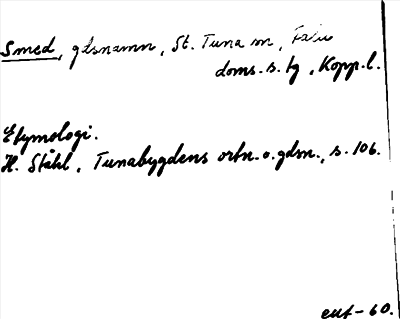 Smed, gdsnamn, St. Tuna sn, Falu
doms. s. tg, Kopp. l.
Etymologi.
H. Ståhl, Tunabygdens ortn. o. gdsn., s. 106.
euf - 60.